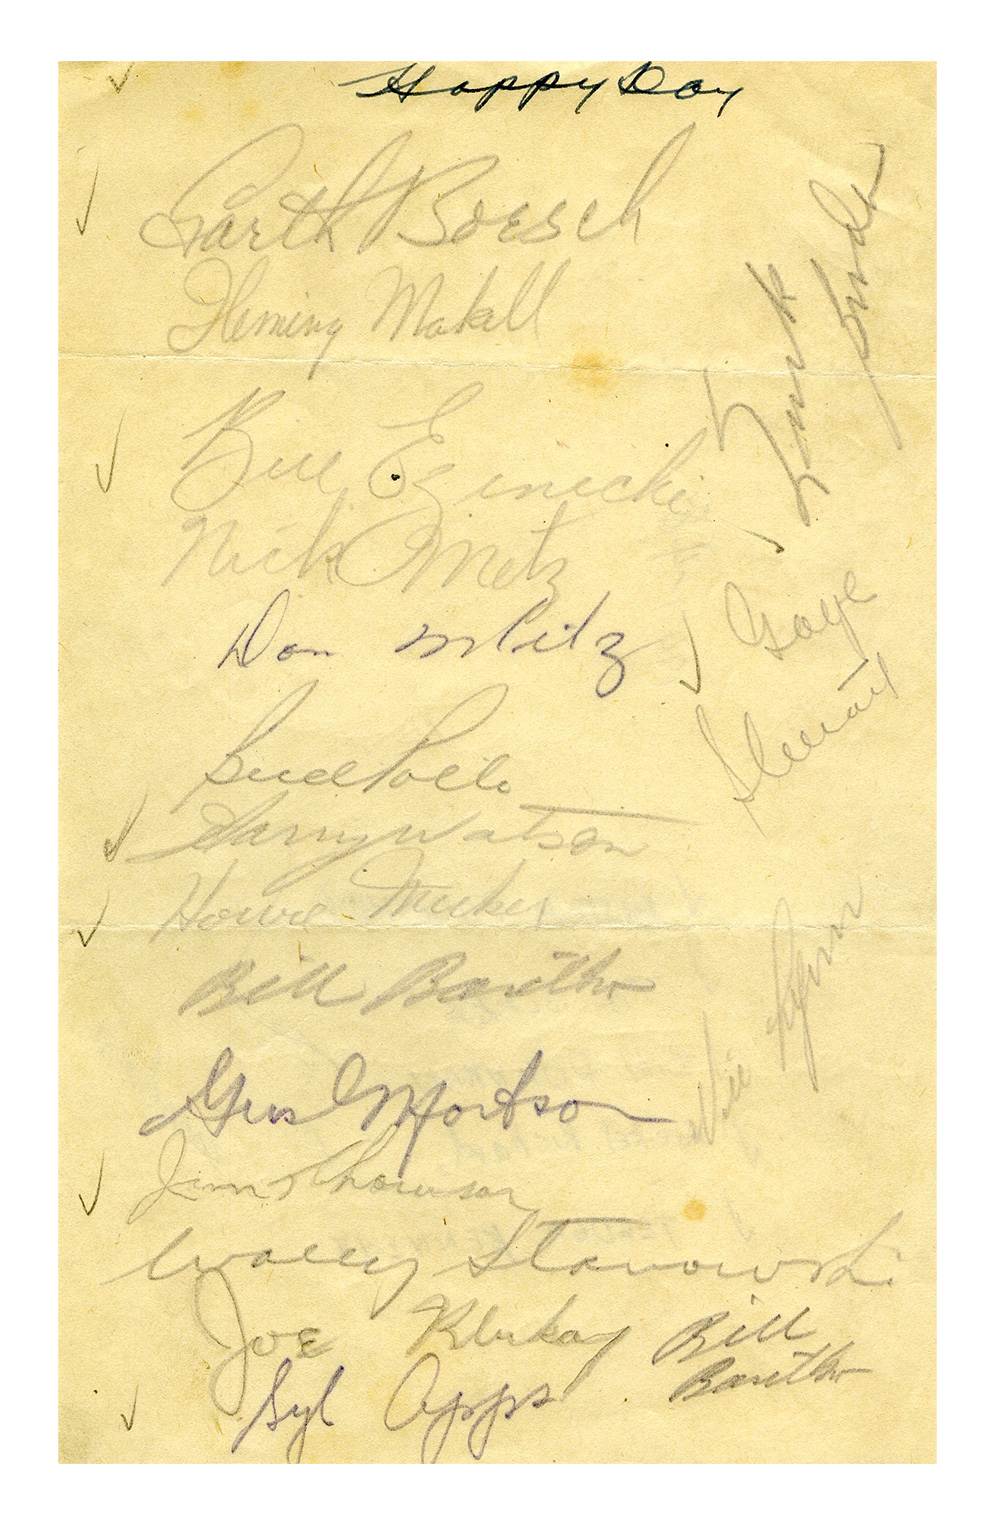 Happy Day
Garth Boesch
Fleming Makell
Bill Ezinicki
Nick Metz
Don Metz
Bud Poile
Harry Watson
Howie Meeker
Bill Barilko
Gus Mortson
Jim Thomson
Wally Stanowski
Joe Klukay
Bill
Barilko
Syl Apps
Gaye
Stewart
Vic Lynn